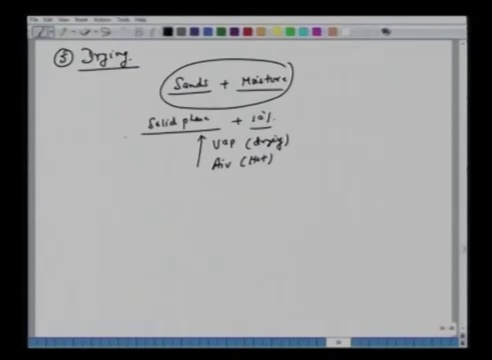 File Edit View Insert Actions Tools Help
⑤ Drying.
Sands + Moisture
Solid phase + 10%.
Vap (drying)
Air (Hot)